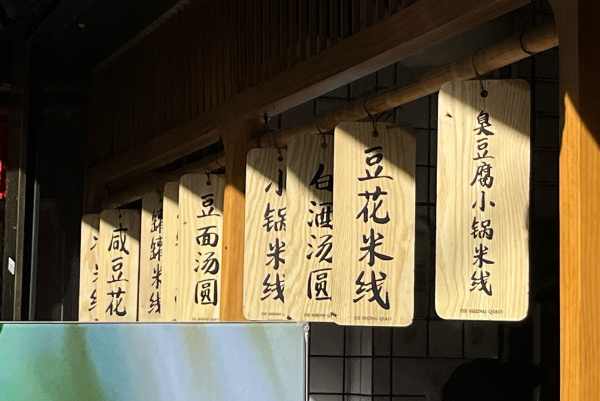 米线
咸豆花
罐罐米线
豆面汤圆
小锅米线
DE SHENG QIAO
白酒汤圆
DE SHENG QIAO
豆花米线
DE SHENG QIAO
臭豆腐小锅米线
DE SHENG QIAO